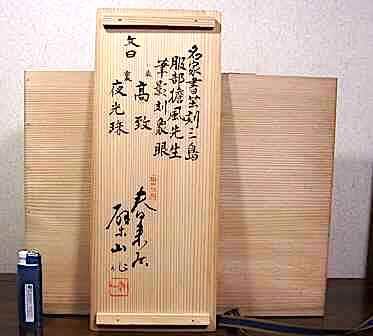 名家書茶刻三島
服部擔風先生
筆影刻象眼
高致
夜光珠
文曰
春来
山